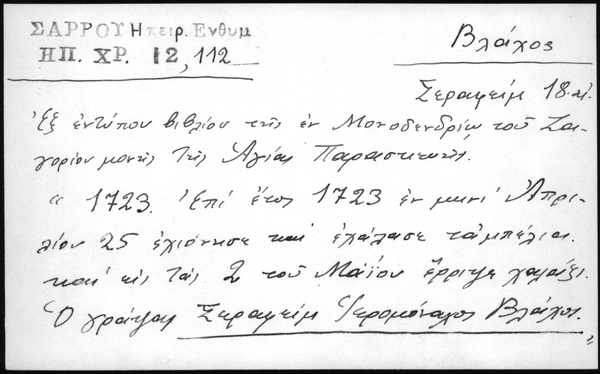 ΣΑΡΡΟΥ Ηπειρ. Ενθυμ
ΗΠ. ΧΡ. 12, 112
Βλάχος
Σεραφείμ 18 αἰ.
Ἐξ ἐντύπου βιβλίου τῆς ἐν Μονοδενδρίῳ τοῦ Ζα-
γορίου μονῆς τῆς Ἁγίας Παρασκευῆς.
" 1723. Ἐπί ἔτος 1723 ἐν μηνί Ἀπρι-
λίου 25 ἐχιόνησε καί ἐχάλασε τἀμπέλια.
καί εἰς τάς 2 τοῦ Μαΐου ἔρριψε χαλάζι.
Ὁ γράψας Σεραφείμ Ἱερομόναχος Βλάχος.
"